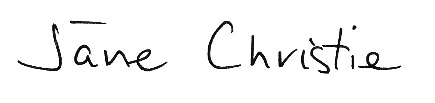 Jane Christie